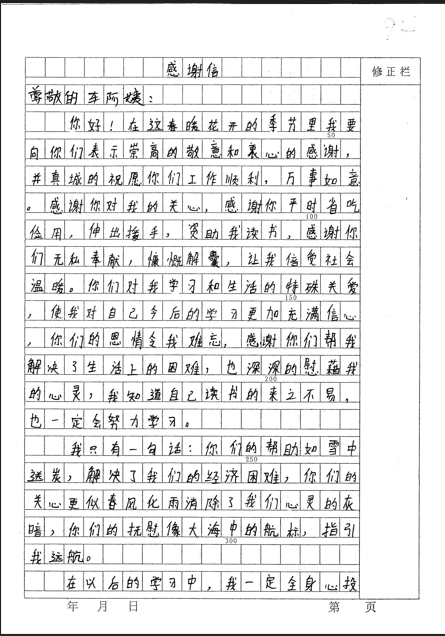 感谢信
修正栏
尊敬的车阿姨：
你好！在这春暖花开的季节里我要
50
向你们表示崇高的敬意和衷心的感谢，
并真城的祝愿你们工作顺利，万事如意
。感谢你对我的关心，感谢你平时省吃
100
俭用，伸出援手，资助我读书，感谢你
们无私奉献，慷慨解囊，让我信受社会
温暖。你们对我学习和生活的特殊关爱
150
，使我对自己今后的学习更加充满信心
，你们的恩情令我难忘，感谢你们帮我
解决了生活上的困难，也深深的慰藉我
200
的心灵，我知道自己读书的来之不易，
也一定会努力学习。
我只有一句话：你们的帮助如雪中
250
送炭，解决了我们的经济困难，你们的
关心更似春风化雨消除了我们心灵的灰
暗，你们的抚慰像大海中的航标，指引
300
我远航。
在以后的学习中，我一定全身心投
年 月 日
第 页